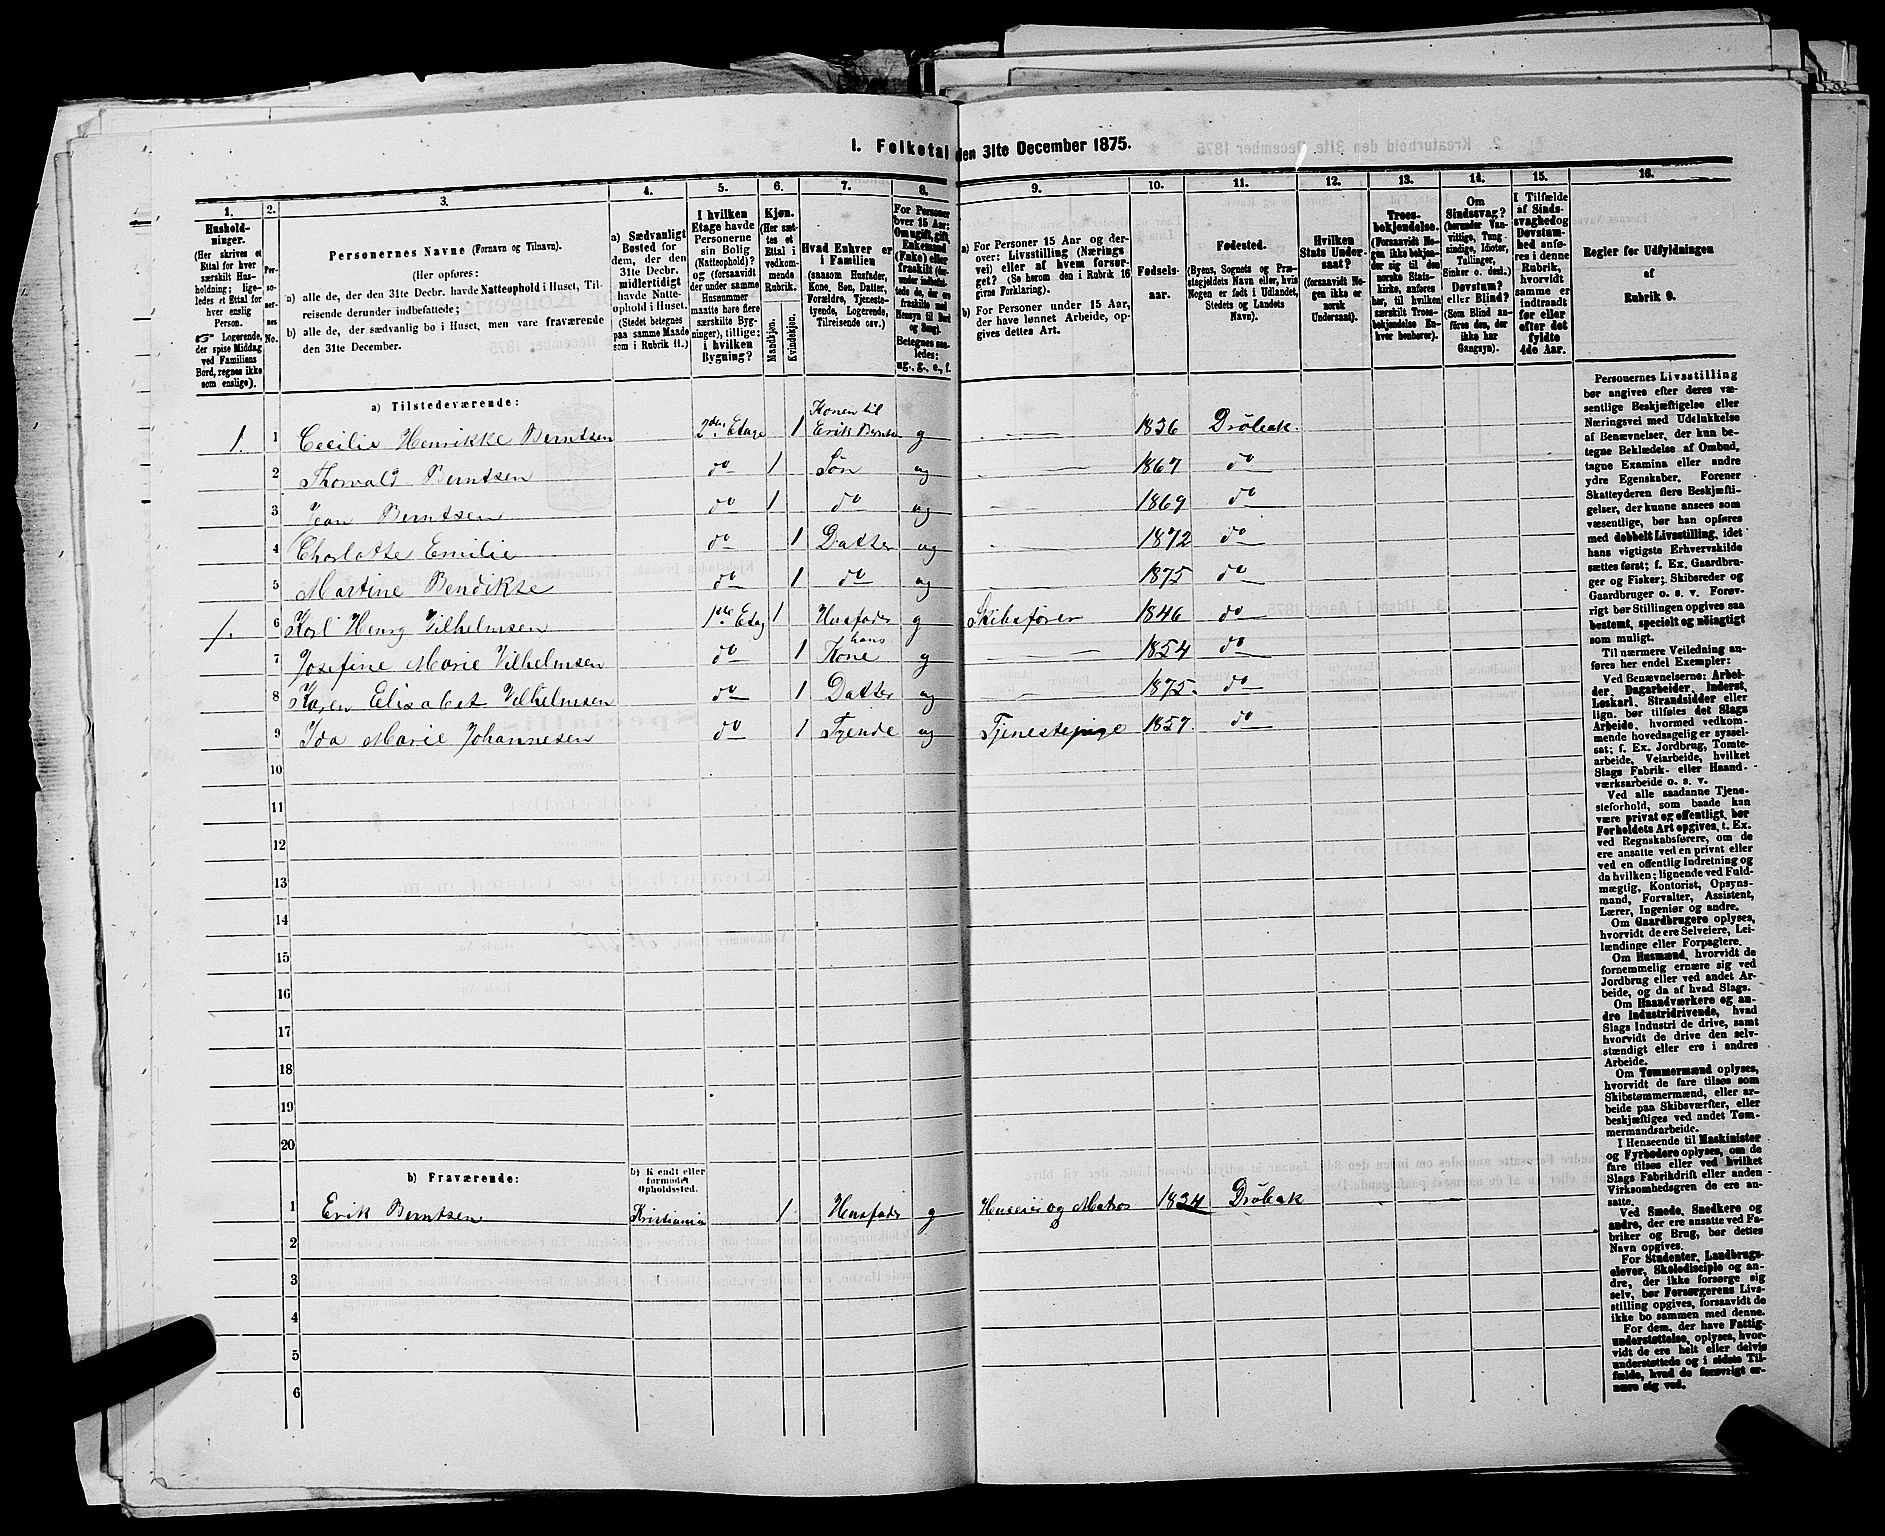 I. Folketal den 31te December 1875.
1. 2. 3. 4. 5. 6. 7. 8. 9. 10. 11. 12. 13. 14. 15. 16.
Husholdninger.
(Her skrives et Ettal for hver særskilt Husholdning; ligeledes et Ettal for hver enslig Person.
Logerende, der spise Middag ved Familiens Bord, regnes ikke som enslige).
Personernes No.
Personernes Navne (Fornavn og Tilnavn).
(Her opføres:
a) alle de, der den 31te Decbr. havde Natteophold i Huset, Tilreisende derunder indbefattede;
b) alle de, der sædvanlig bo i Huset, men vare fraværende den 31te December.
a) Sædvanligt Bosted for dem, der den 31te Decbr. midlertidigt havde Natteophold i Huset.
(Stedet betegnes paa samme Maade som i Rubrik 11.)
I hvilken Etage havde Personerne sin Bolig (Natteophold)? og (forsaavidt der under samme Husnummer maatte høre flere særskilte Bygninger), tillige: i hvilken Bygning?
Kjøn.
(Her sættes et Ettal i vedkommende Rubrik.
Mandkjøn. Kvindekjøn.
Hvad Enhver er i Familien
(saasom Husfader, Kone, Søn, Datter, Forældre, Tjenestetyende, Logerende, Tilreisende osv.)
For Personer over 15 Aar: Om ugift, gift, Enkemand (Enke) eller fraskilt
Betegnes saaledes: ug., g., e., f.
a) For Personer 15 Aar og derover: Livsstilling (Næringsvei) eller af hvem forsørget? (Se herom den i Rubrik 16 givne Forklaring).
b) For Personer under 15 Aar, der have lønnet Arbeide, opgives dettes Art.
Fødselsaar.
Fødested.
(Byens, Sognets og Præstegjeldets Navn eller, hvis Nogen er født i Udlandet, Stedets og Landets Navn).
Hvilken Stats Undersaat?
(forsaavidt Nogen ikke er norsk Undersaat).
Troesbekjendelse.
(Forsaavidt Nogen ikke bekjender sig til den norske Statskirke, anføres her, til hvilken særskilt Troesbekjendelse Enhver henhører).
Om Sindssvag? (herunder Vanvittige, Tungsindige, Idioter, Tullinger, Sinker o. desl.)
Døvstum? eller Blind? (Som Blind anføres den, der ikke har Gangsyn).
I Tilfælde af Sindssvaghed og Døvstumhed anføres i denne Rubrik, hvorvidt samme er indtraadt før eller efter det fyldte 4de Aar.
Regler for Udfyldningen af Rubrik 9.
a) Tilstedeværende:
1. 1 Cecilie Henrikke Berntsen 2den Etage 1 Konen til Erik Berntsen g 1836 Drøbak.
2 Thorvald Berntsen do 1 Søn ug 1867 do
3 Jean Berntsen do 1 do ug 1869 do
4 Charlotte Emilie do 1 Datter ug 1872 do
5 Martine Bendikte do 1 do ug 1875 do
1. 6 Karl Henry Vilhelmsen 1ste Etag 1 Husfader g Skibsfører 1846 do
7 Josefine Marie Vilhelmsen do 1 hans Kone g 1854 do
8 Karen Elisabet Vilhelmsen do 1 Datter ug 1875. do
9 Ida Marie Johannesen do 1 Tyende ug Tjenestepige 1857. do
10
11
12
13
14
15
16
17
18
19
20
b) Fraværende: b) Kjendt eller formodet Opholdssted.
1 Erik Berntsen Kristiania 1 Husfader g Huseier og Matros 1824 Drøbak
2
3
4
5
6
Personernes Livsstilling
bør angives efter deres væ-
sentlige Beskjæftigelse eller
Næringsvei med Udelukkelse
af Benævnelser, der kun be-
tegne Beklædelse af Ombud,
tagne Examina eller andre
ydre Egenskaber. Forener
Skatteyderen flere Beskjæfti-
gelser, der kunne ansees som
væsentlige, bør han opføres
med dobbelt Livsstilling, idet
hans vigtigste Erhvervskilde
sættes først; f. Ex. Gaardbru-
ger og Fisker; Skibsreder og
Gaardbruger o. s. v. Forøv-
rigt bør Stillingen opgives saa
bestemt, specielt og nøiagtigt
som muligt.
Til nærmere Veiledning an-
føres her endel Exempler:
Ved Benævnelserne: Arbei-
der, Dagarbeider, Inderst,
Løskarl, Strandsidder eller
lign. bør tilføies det Slags
Arbeide, hvormed vedkom-
mende hovedsagelig er syssel-
sat; f. Ex. Jordbrug, Tomte-
arbeide, Veiarbeide, hvilket
Slags Fabrik- eller Haand-
værksarbeide o. s. v.
Ved alle saadanne Tjene-
steforhold, som baade kan
være privat og offentligt, bør
Forholdets Art opgives, t. Ex.
ved Regnskabsførere, om de
ere ansatte ved en privat eller
ved en offentlig Indretning og
da hvilken; lignende ved Fuld-
mægtig, Kontorist, Opsyns-
mand, Forvalter, Assistent,
Lærer, Ingeniør og andre.
Om Gaardbrugere oplyses,
hvorvidt de ere Selveiere, Lei-
lændinge eller Forpagtere.
Om Husmænd, hvorvidt de
fornemmelig ernære sig ved
Jordbrug eller ved andet Ar-
beide, og da af hvad Slags.
Om Haandværkere og an-
dre Industridrivende, hvad
Slags Industri de drive, samt
hvorvidt de drive den selv-
stændigt eller ere i andres
Arbeide.
Om Tømmermænd oplyses,
hvorvidt de fare tilsøs som
Skibstømmermænd, eller ar-
beide paa Skibsværfter, eller
beskjæftiges ved andet Tøm-
mermandsarbeide.
I Henseende til Maskinister
og Fyrbødere oplyses, om de
fare tilsøs eller ved hvilket
Slags Fabrikdrift eller anden
Virksomhedsgren de ere an-
satte.
Ved Smede, Snedkere og
andre, der ere ansatte ved Fa-
briker og Brug, bør dettes
Navn opgives.
For Studenter, Landbrugs-
elever, Skoledisciple og an-
dre, der ikke forsørge sig
selv, bør Forsørgerens Livs-
stilling opgives, forsaavidt de
ikke bo sammen med denne.
For dem, der have Fattig-
understøttelse, oplyses, hvor-
vidt de ere helt eller delvis
understøttede og i sidste Til-
fælde, hvad de forøvrigt er-
nære sig ved.